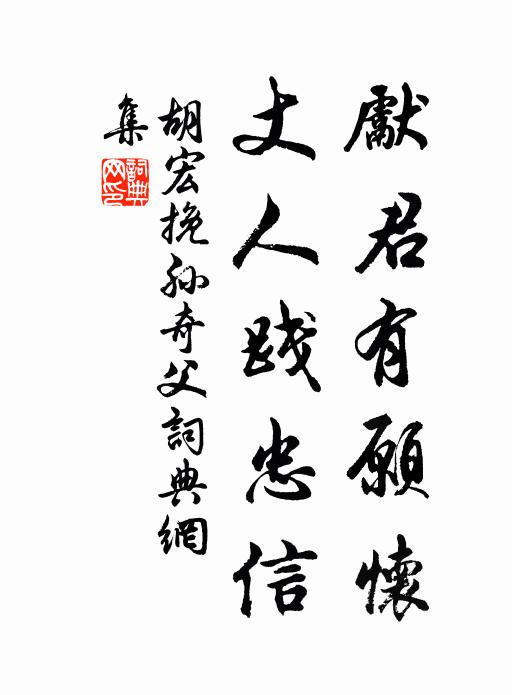 獻君有願懷
丈人踐忠信
胡宏挽孫奇父詞典網
集
詞典網印